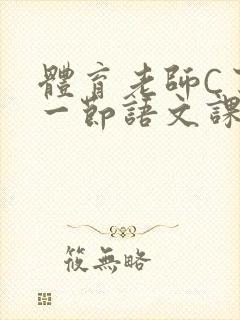 體育老師C了
一節語文課
筱無略